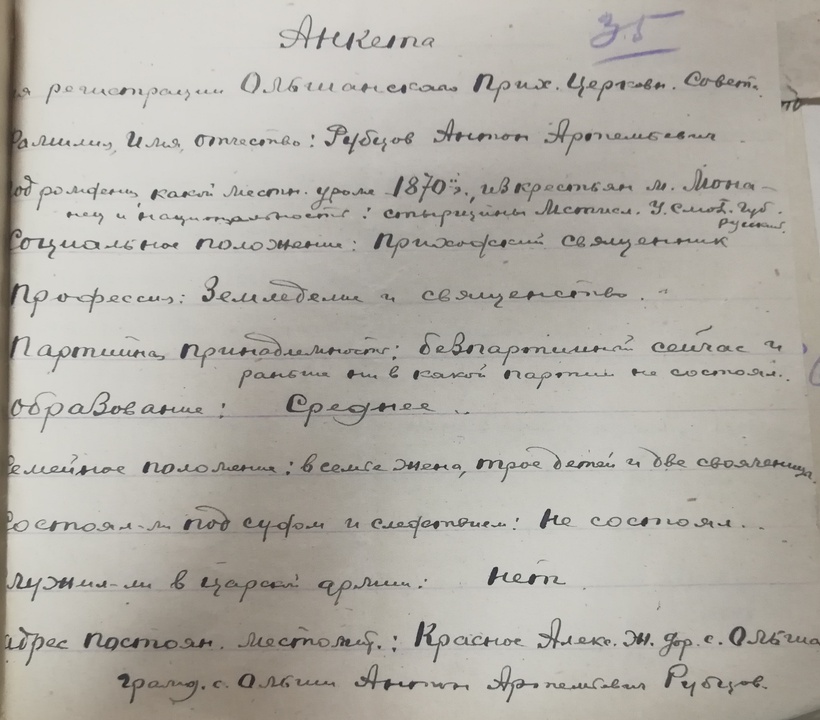 Анкета
35
я регистрации Ольшанского Прих. Церковн. Совет.
Фамилия, имя, отчество: Рубцов Антон Артемьевич
од рождения какой местн. урож. 1870 г., из крестьян м. Мона-
и национальность: стырщины Мстисл. У. Смол. Губ.
русский.
Социальное положение: Приходский священник
Профессия: Земледелие и священство.
Партийная принадлежность: беспартийный сейчас и
раньше ни в какой партии не состоял..
образование: Среднее..
емейное положение: в семье жена, трое детей и две свояченицы.
Состоял-ли под судом и следствием: Не состоял...
лужил-ли в царской армии: Нет
адрес постоян. местожит.: Красное Алекс. ж. дор. с. Ольша
гражд. с. Ольши Антон Артемьевич Рубцов.